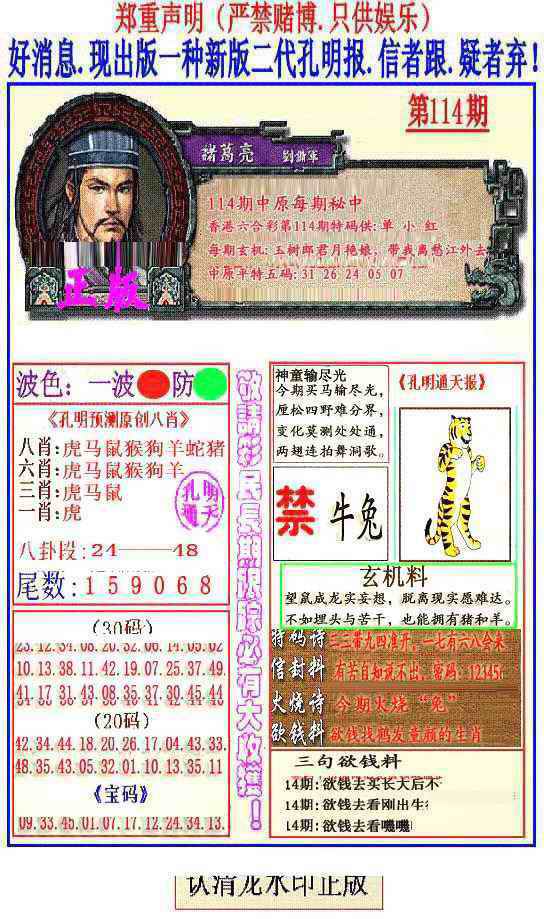 郑重声明（严禁赌博.只供娱乐）
好消息.现出版一种新版二代孔明报.信者跟.疑者弃！
第114期
諸葛亮
114期中原每期秘中
香港六合彩第114期特码供:单 小 红
每期玄机:玉树郎君月艳娘，带我离愁江外去
中原平特五码:31 26 24 05 07
正版
波色：一波 防
《孔明预测原创八肖》
八肖:虎马鼠猴狗羊蛇猪
六肖:虎马鼠猴狗羊
三肖:虎马鼠
一肖:虎
孔明通天
八卦段:24——48
尾数:159068
(30码)
23.12.34.08.20.32.06.14.05.02
10.13.38.11.42.19.07.25.37.49
41.17.31.43.08.35.37.30.45.44
(20码)
42.34.44.18.20.26.17.04.43.33.
48.35.43.05.32.01.10.13.35.11
《宝码》
09.33.45.01.07.17.12.24.34.13.
敬請彩民長期跟踪必有大收獲！
神童输尽光
今期买马输尽光，
厘松四野难分界，
变化莫测处处通，
两翅连拍舞洞歌。
《孔明通天报》
禁 牛兔
玄机料
望鼠成龙实妄想，脱离现实愿难达。
不如埋头与苦干，也能拥有猪和羊。
特码诗 三三带九四准开，一七有六八会来
信封料 有苦自知说不出，密码：12345
火烧诗 今期火烧“兔”
欲钱料 欲钱找鹤发童颜的生肖
三句欲钱料
14期:欲钱去买长大后不
14期:欲钱去看刚出生
14期:欲钱去看嘰嘰
认清龙水印正版